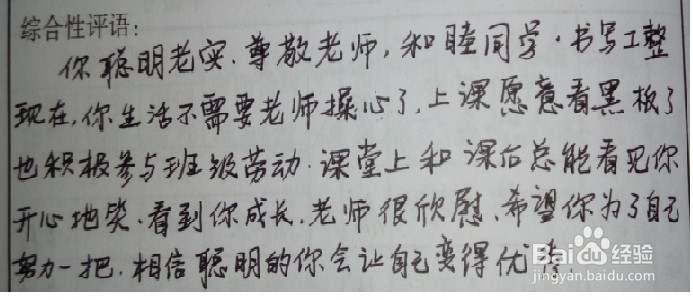 综合性评语:
你聪明老实.尊敬老师,和睦同学.书写工整
现在,你生活不需要老师操心了,上课愿意看黑板了
也积极参与班级劳动.课堂上和课后总能看见你
开心地笑.看到你成长.老师很欣慰、希望你为了自己
努力一把.相信聪明的你会让自己变得优
Baidu经验
jingyan.baidu.com